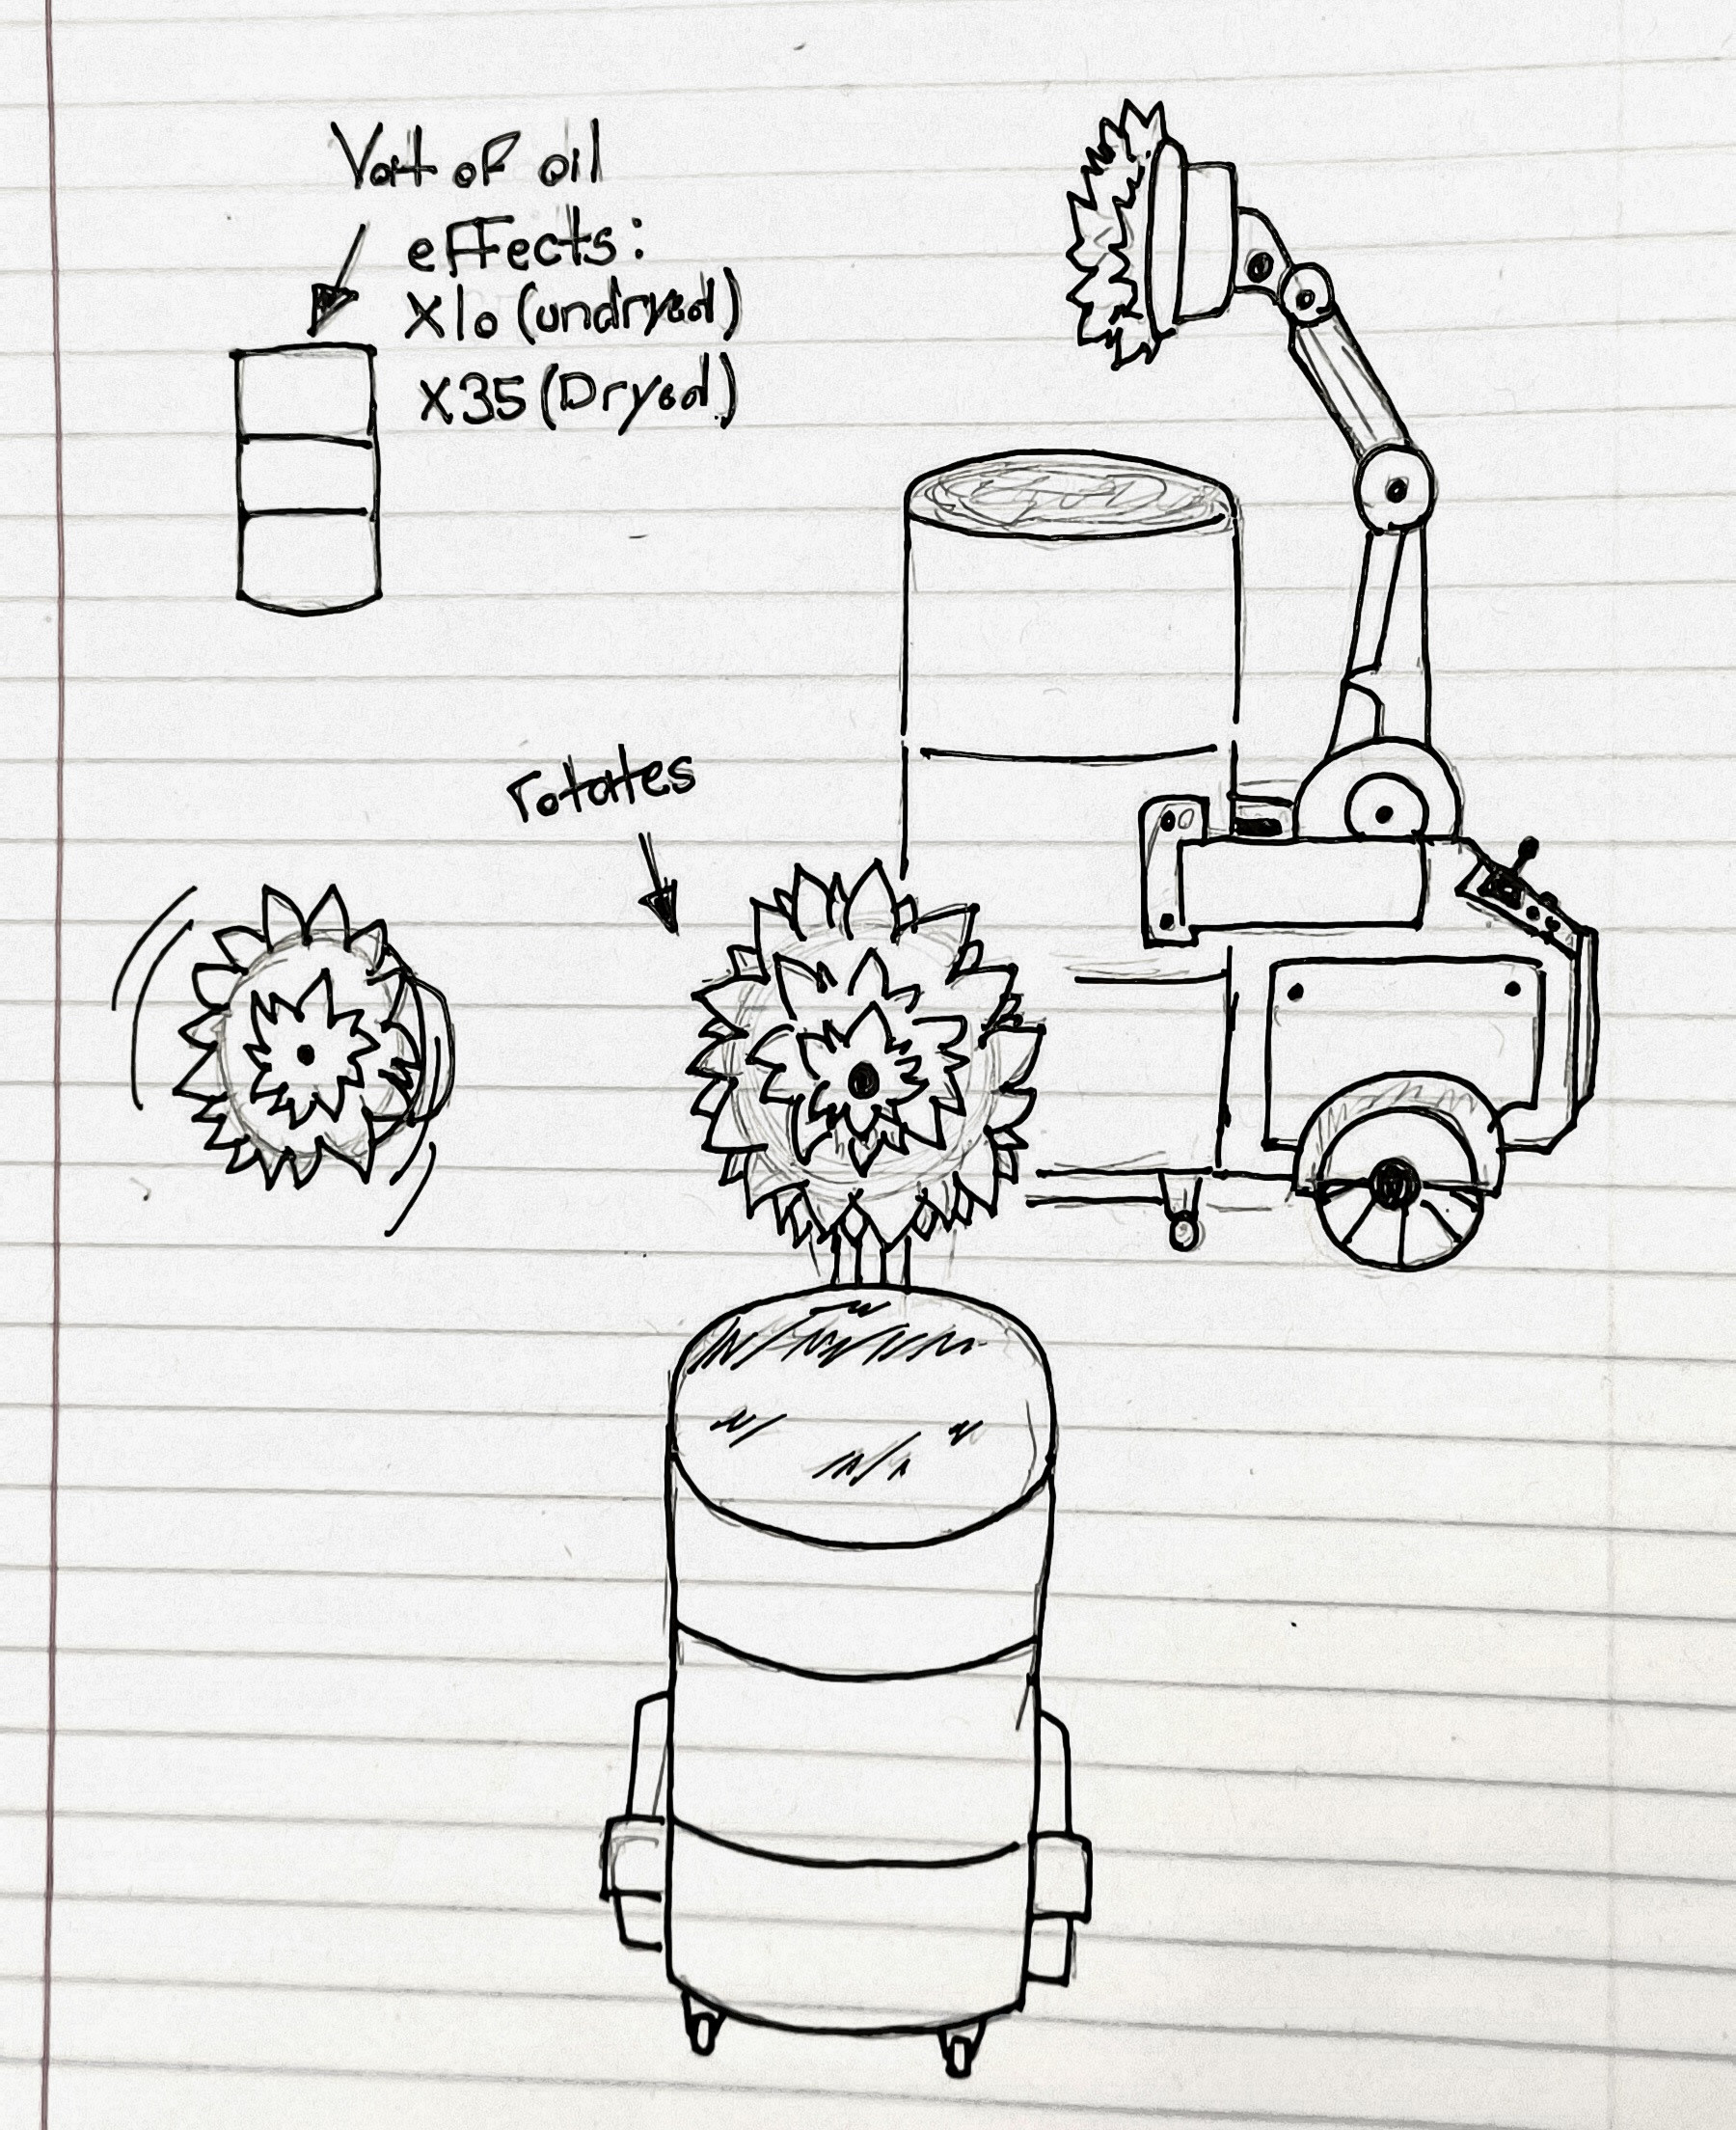 Vat of oil
effects:
x10 (undryed)
x35 (Dryed)
rotates